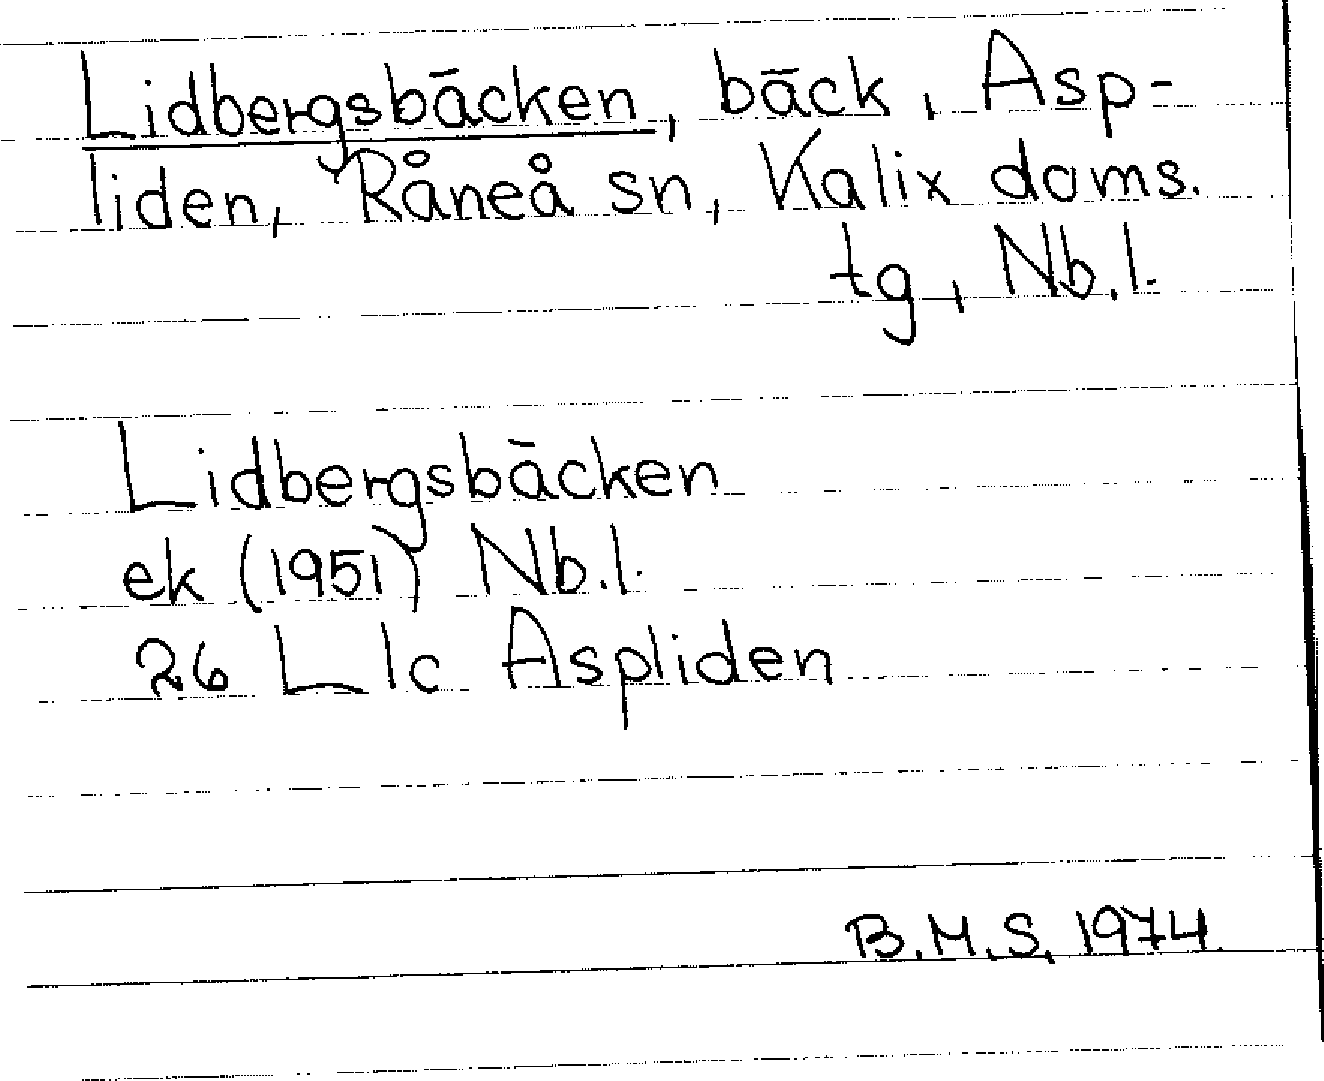 Lidbergsbäcken, bäck, Asp-
liden, Råneå sn, Kalix doms.
tg, Nb.l.
Lidbergsbäcken
ek (1951) Nb.l.
26 L 1c Aspliden
B.M.S. 1974